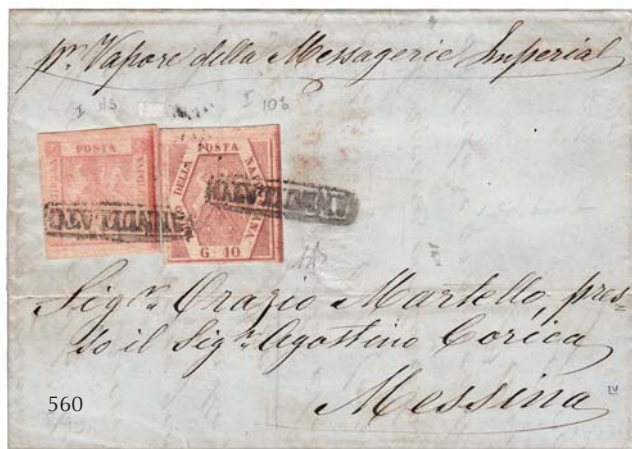 pr. Vapore della Messagerie Imperial
I I 10b
POSTA POSTA
DELLA NAPOLETANA
ANNULLATO ANNULLATO
G. 10
Sigr. Orazio Martello, pres=
so il Sigr. Agostino Corica
Messina
560